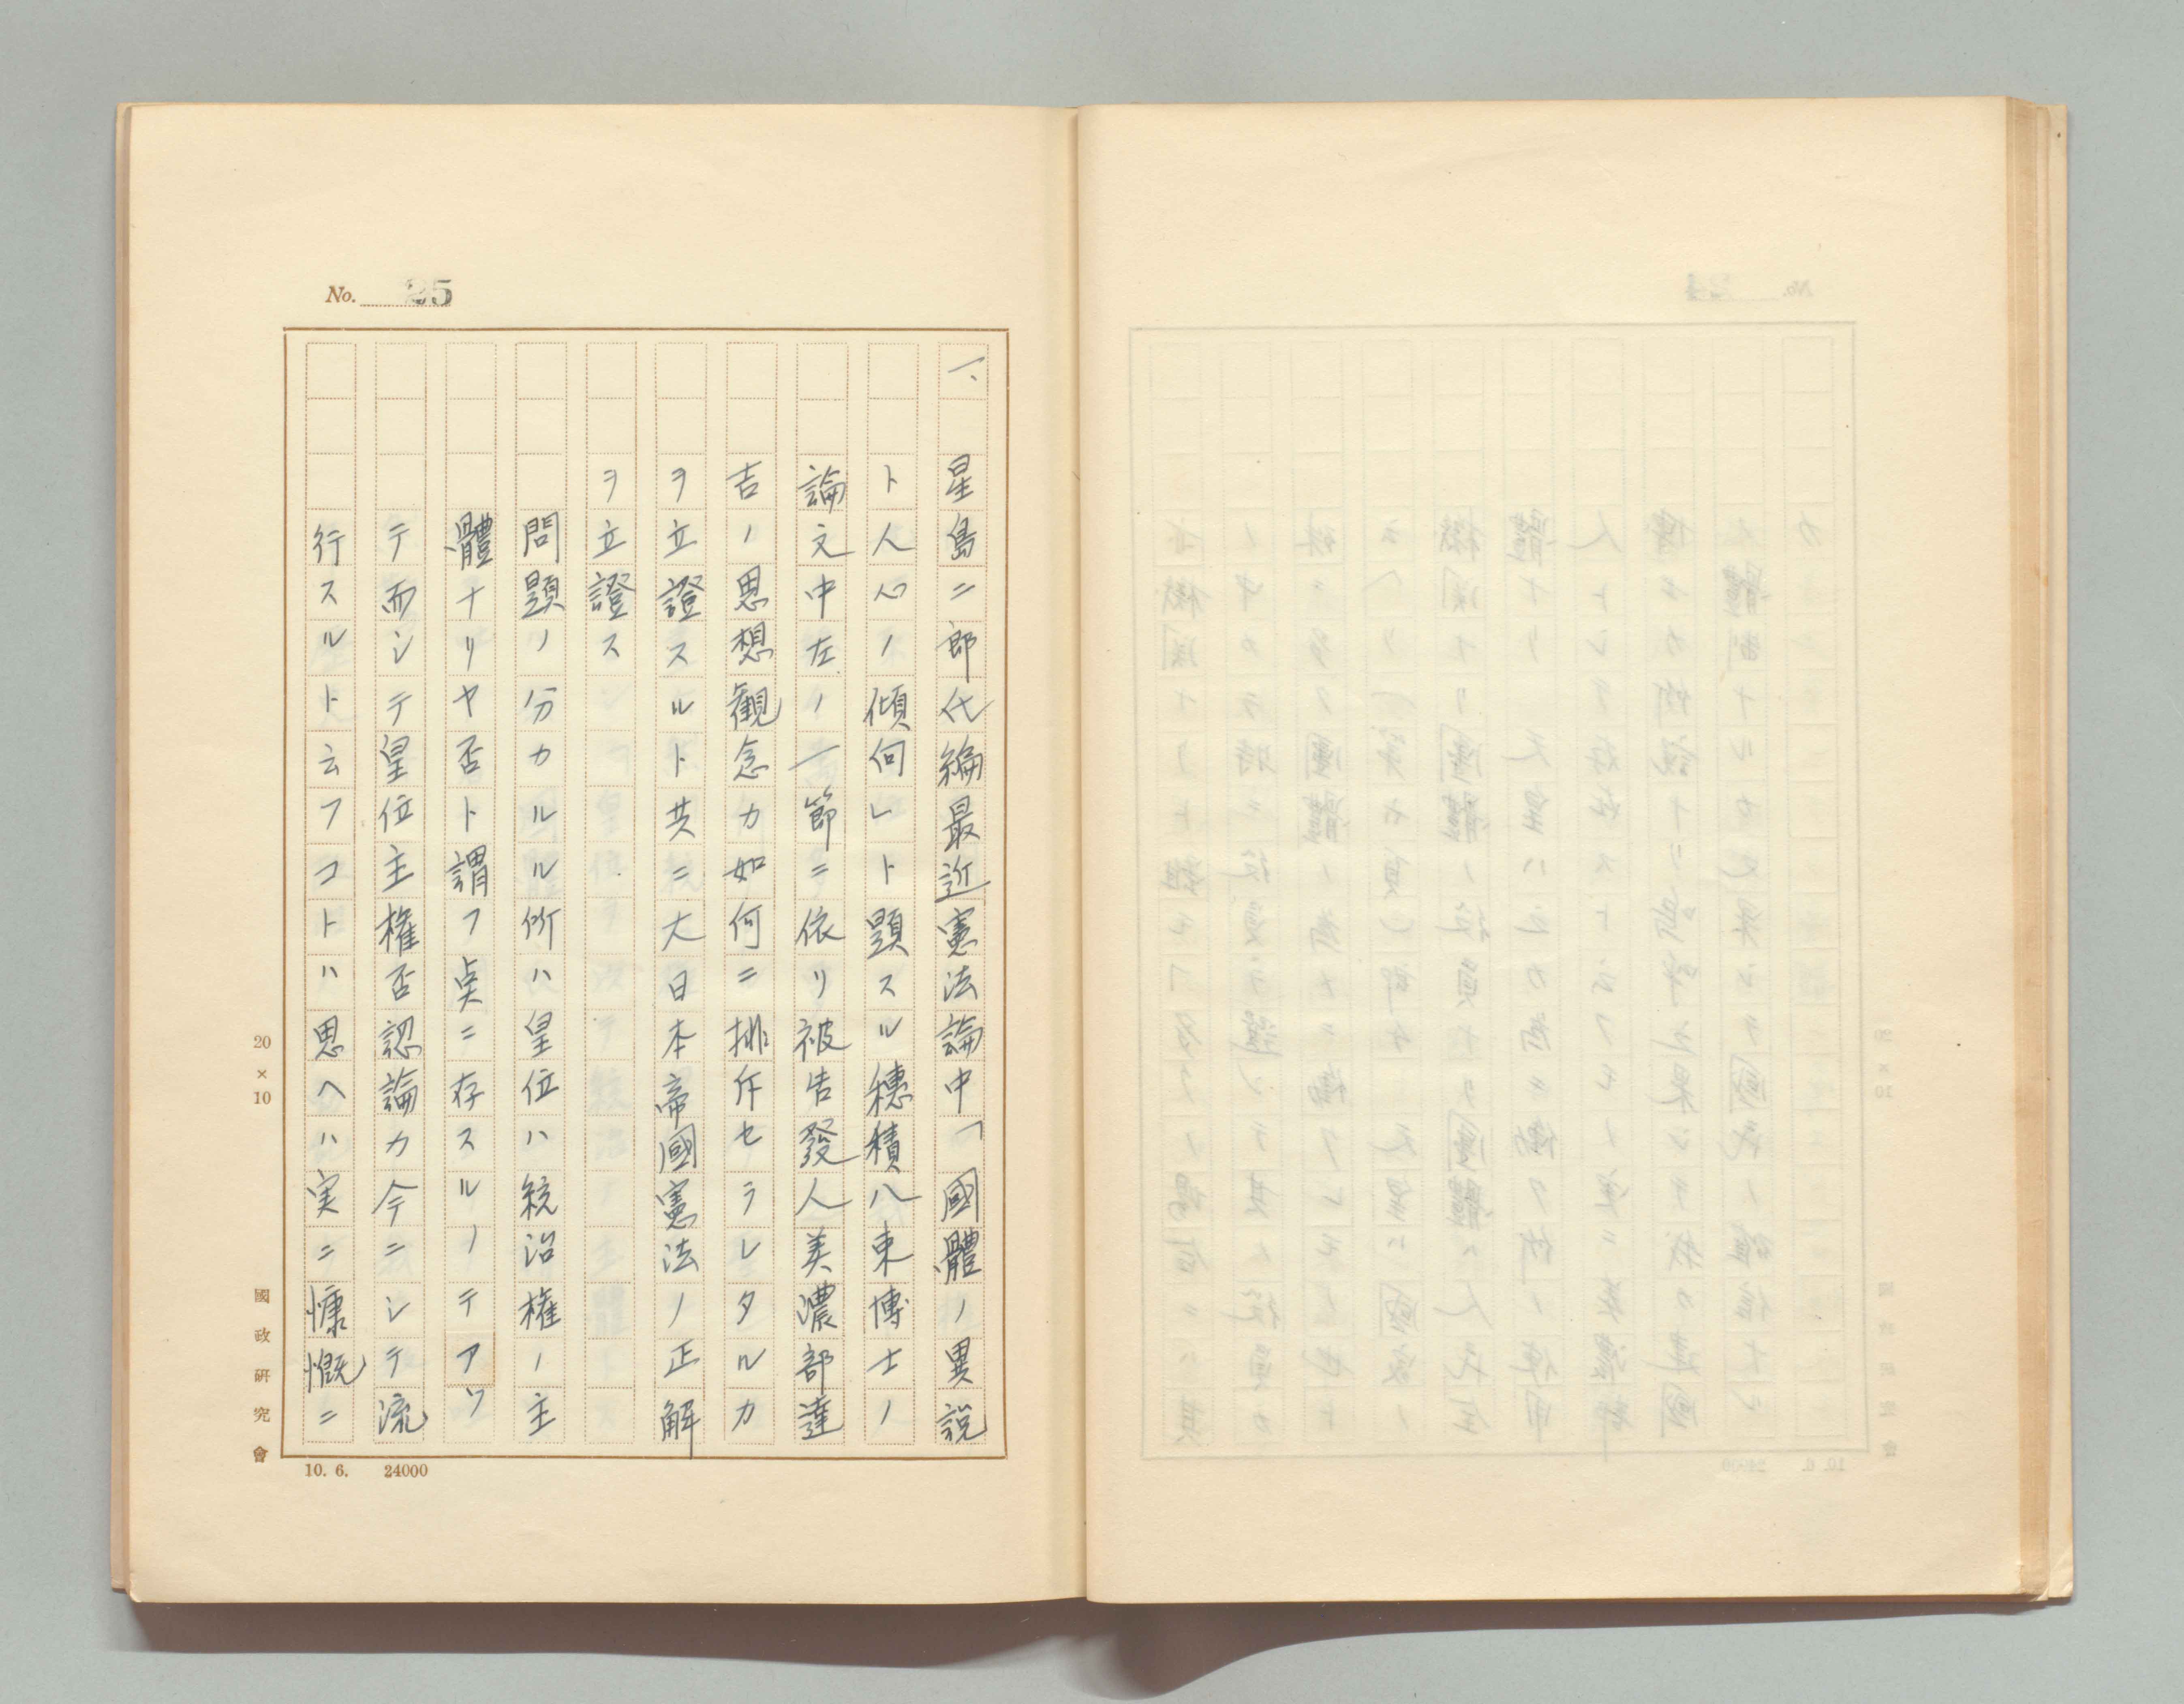 No. 25
一、星島二郎代編最近憲法論中「國體ノ異説
ト人心ノ傾何レト題スル穗積八束博士ノ
論文中左ノ一節ニ依リ被告發人美濃部達
吉ノ思想觀念カ如何ニ排斥セラレタルカ
ヲ立證スルト共ニ大日本帝國憲法ノ正解
ヲ立證ス
問題ノ分カルル所ハ皇位ハ統治權ノ主
體ナリヤ否ト謂フ点ニ存スルノテアツ
テ而シテ皇位主權否認論カ今ニシテ流
行スルト云フコトハ思ヘハ実ニ慷慨ニ
20×10
國政研究會
10. 6. 24000